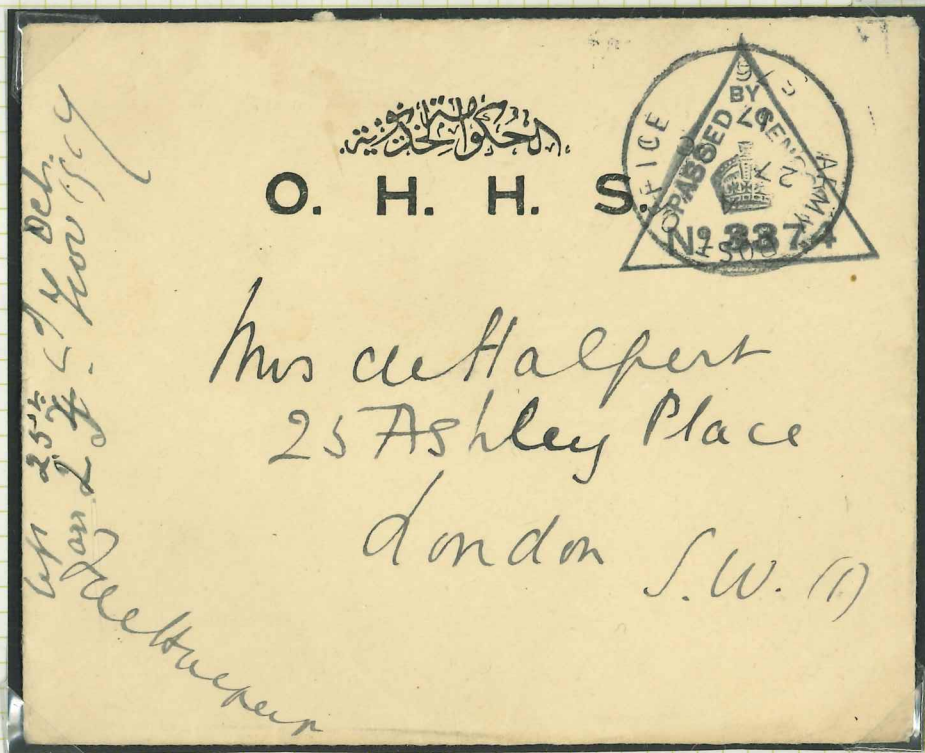 الحكومة الخديوية
O. H. H. S.
PASSED BY CENSOR
No 3374
ARMY POST OFFICE
Mrs de Halpert
25 Ashley Place
London S.W. (1)
25th
Nov 1919